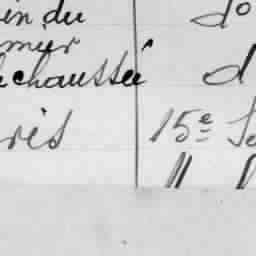 in du do
mier
chaussée d
ris 15e
" "